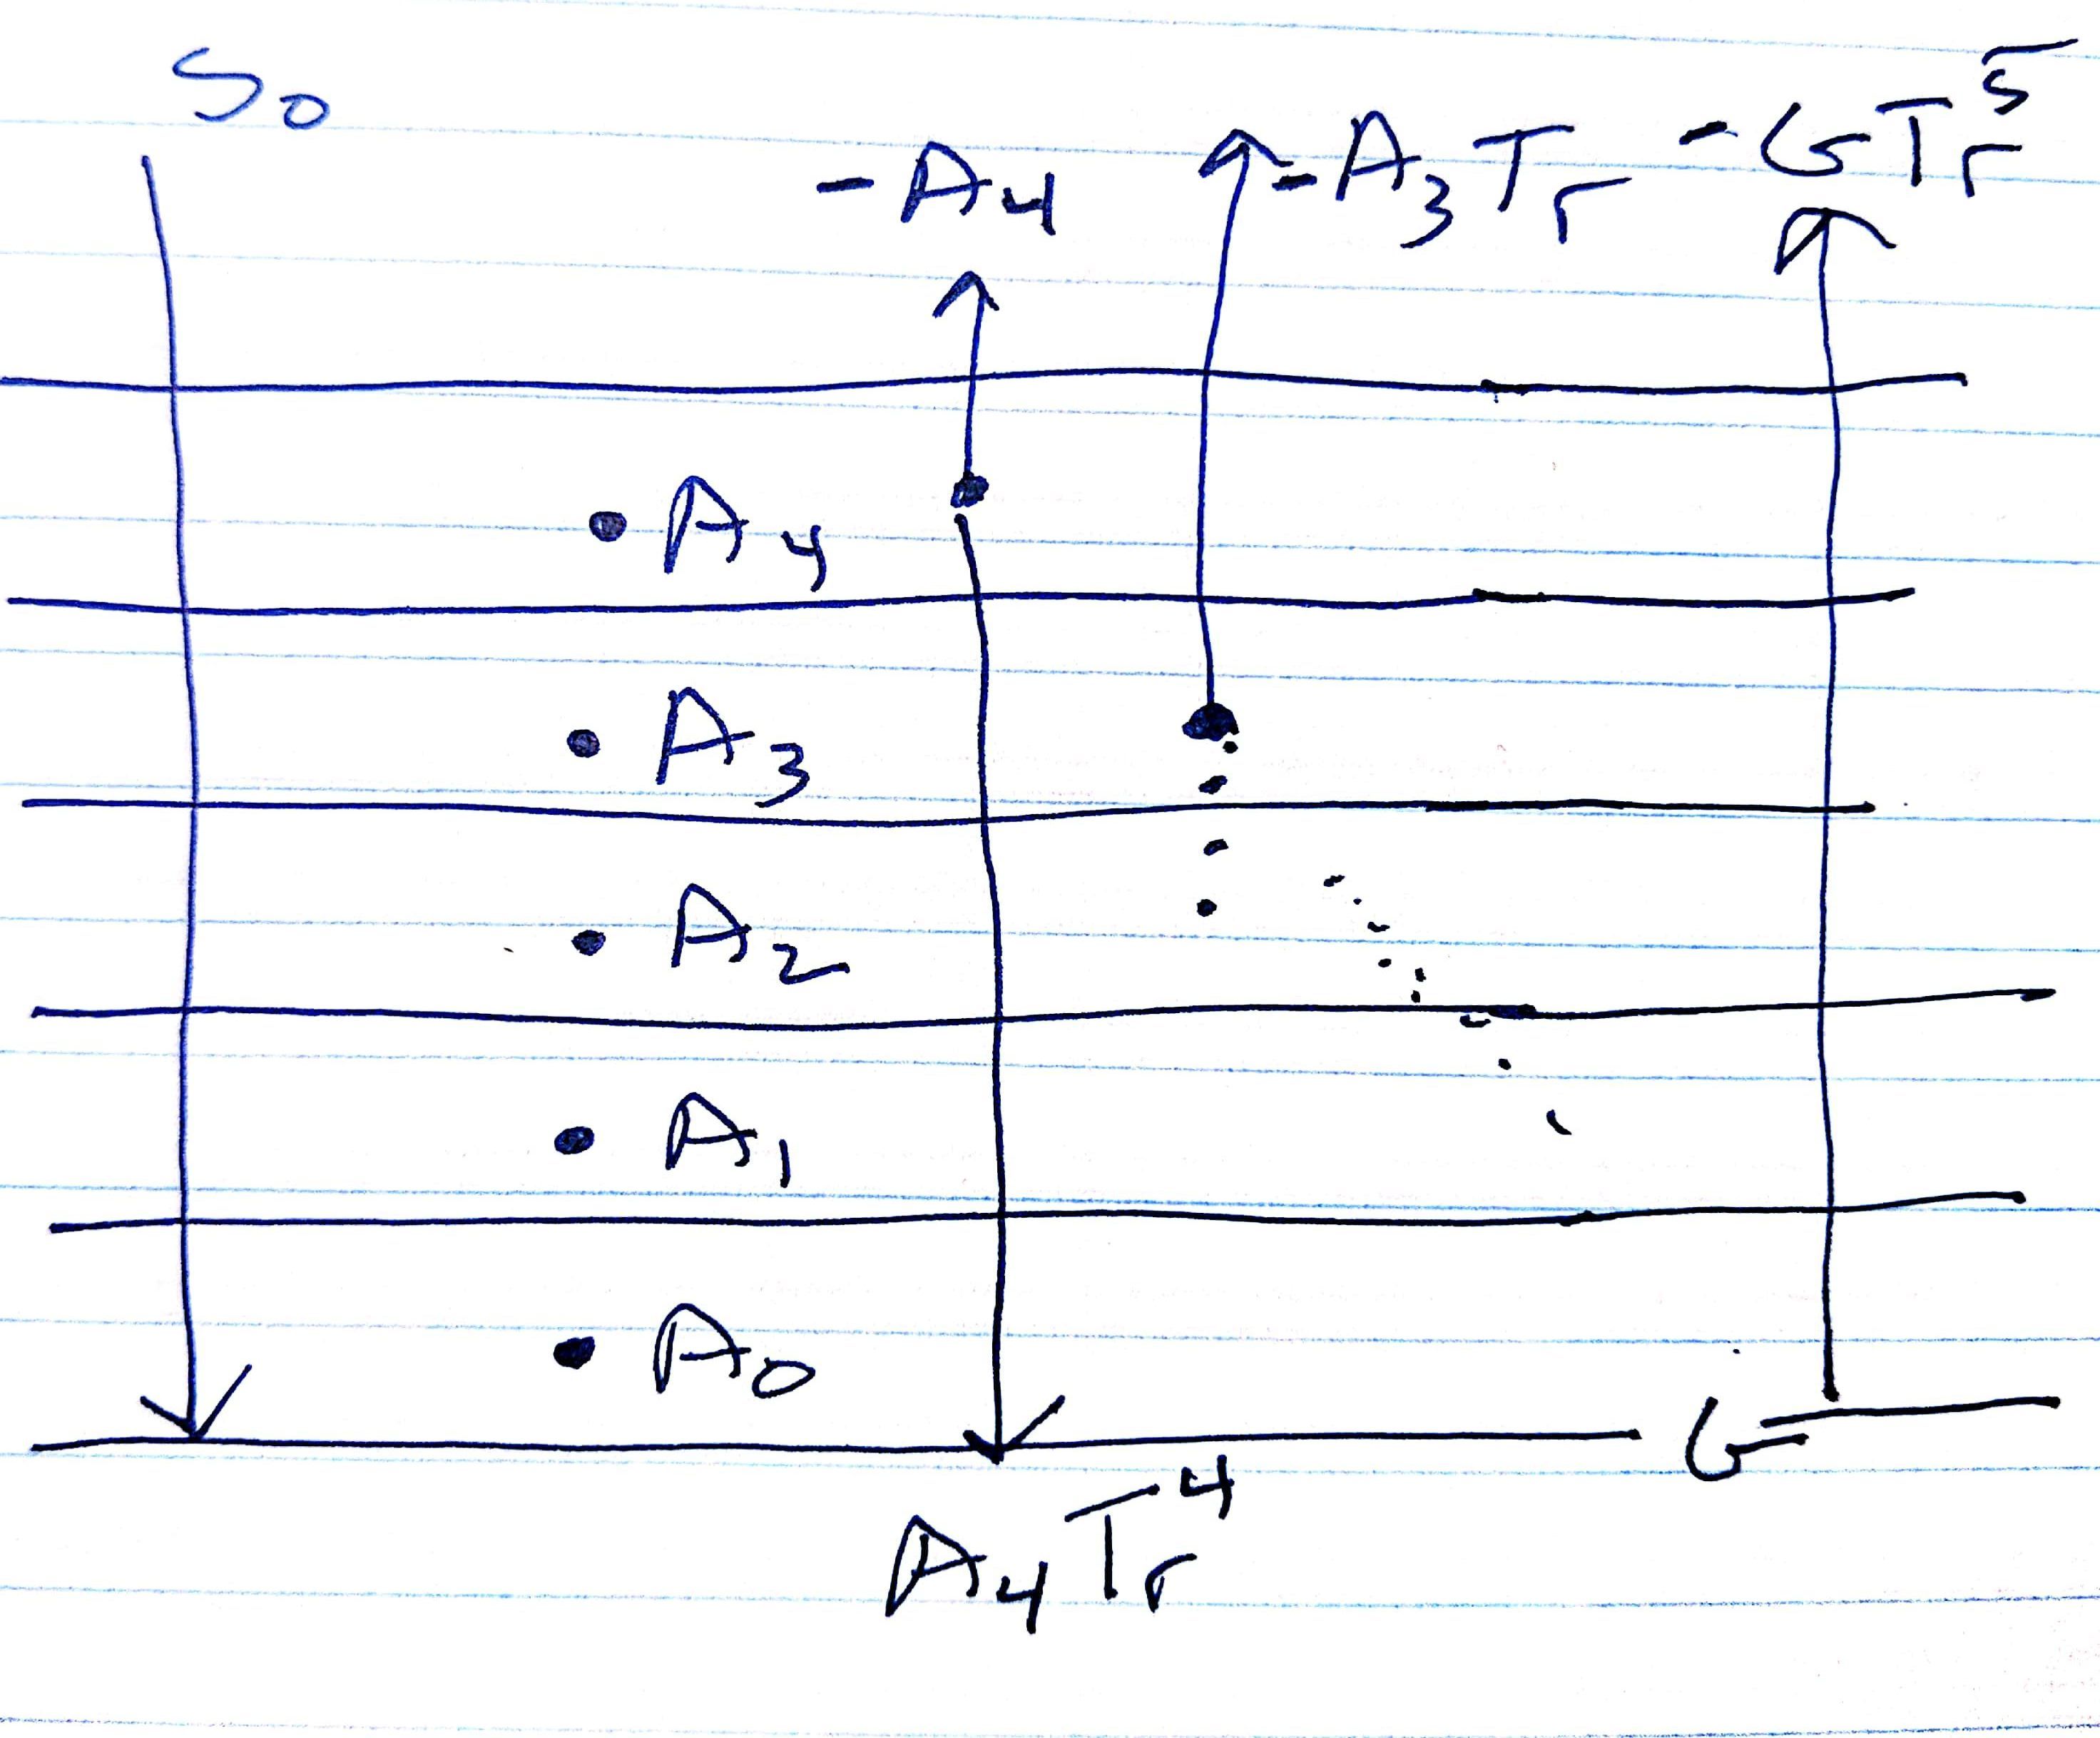 S₀
-A₄
-A₃Tᵣ
-GTᵣ⁵
A₄
A₃
A₂
A₁
A₀
G
A₄Tᵣ⁴